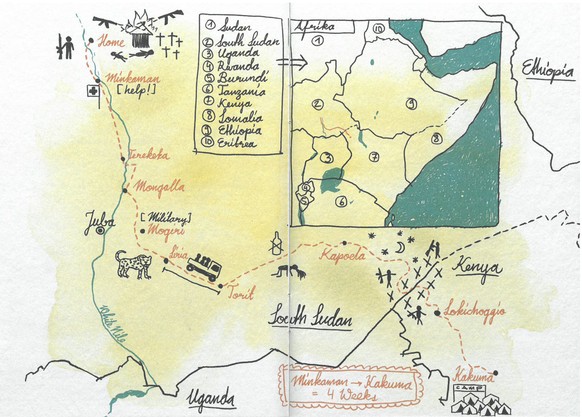 Home
Minkaman
[help!]
Terekeka
Mongalla
Juba
[Military]
Mogiri
Liria
Torit
White Nile
Uganda
① Sudan
② South Sudan
③ Uganda
④ Rwanda
⑤ Burundi
⑥ Tanzania
⑦ Kenya
⑧ Somalia
⑨ Ethiopia
⑩ Eritrea
Afrika
①
⑩
②
⑨
⑧
③
⑦
④
⑤
⑥
Ethiopia
Kapoeta
South Sudan
Kenya
Lokichoggio
Kakuma
CAMP
Minkaman → Kakuma
= 4 Weeks